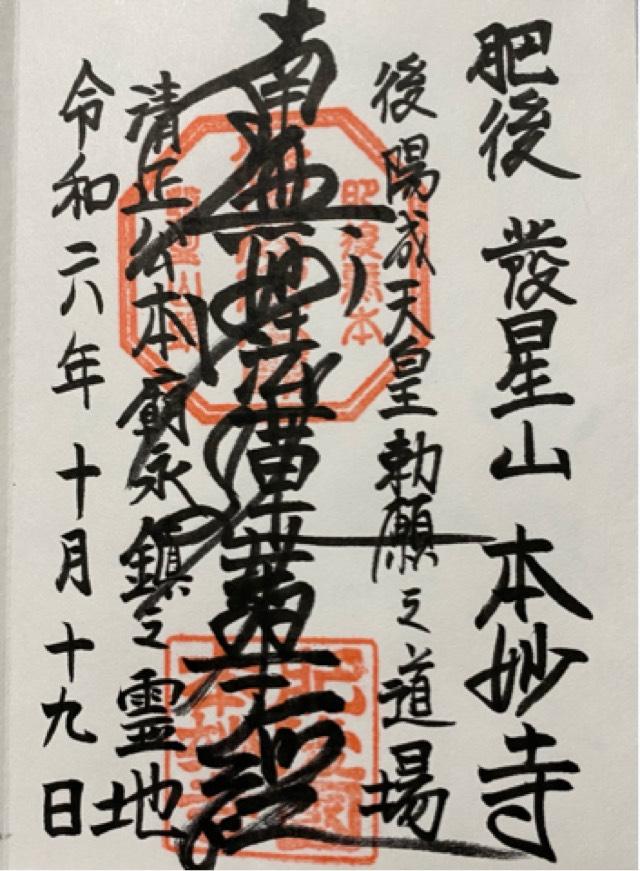 肥後 發星山 本妙寺
後陽成天皇勅願之道場
南無妙法蓮華経
清正公本廟永鎮之霊地
令和六年十月十九日
肥後熊本